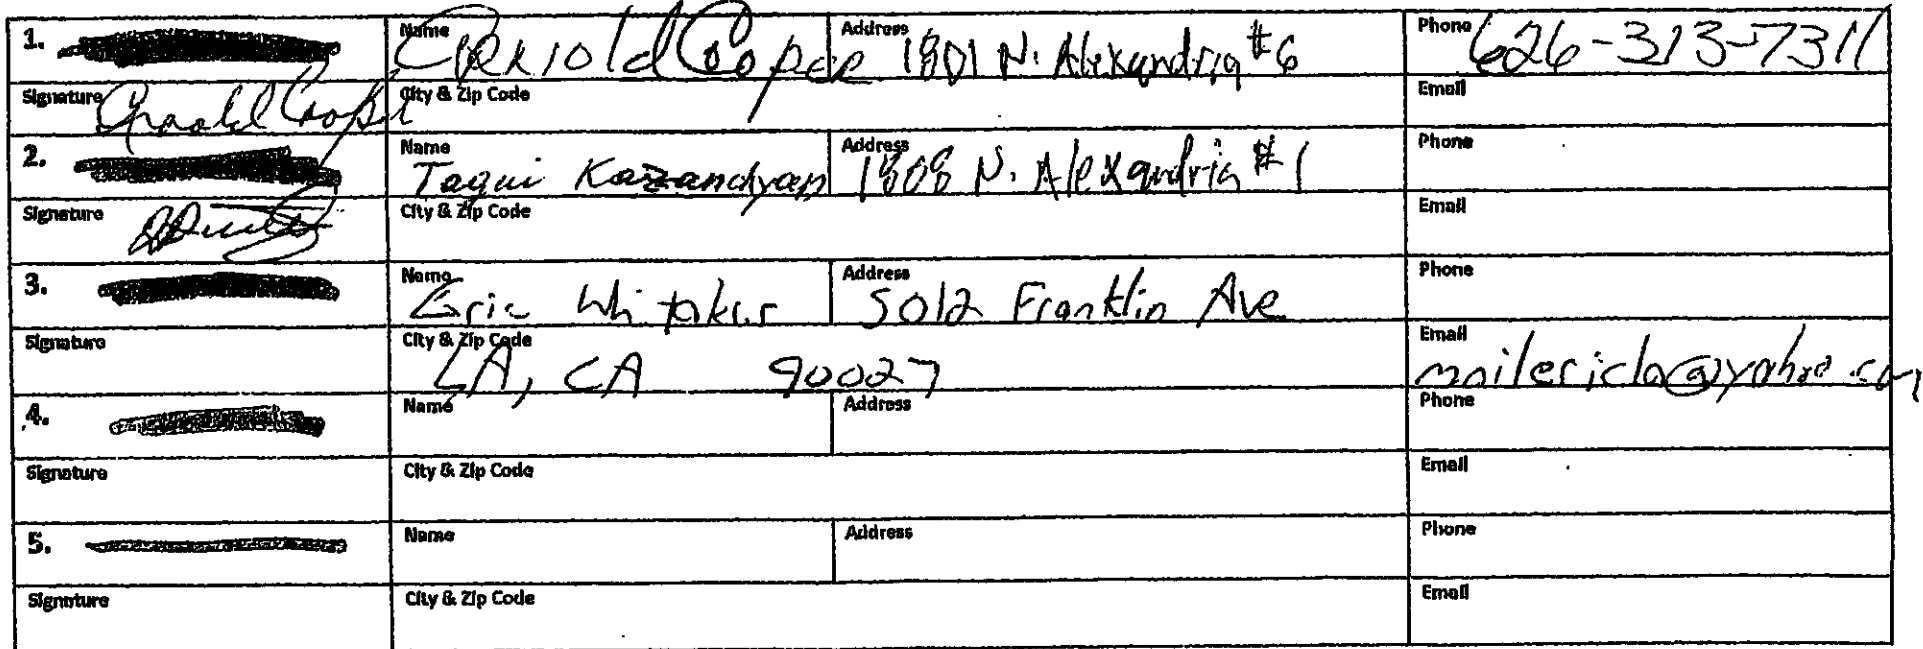 1. Name Address 1801 N. Alexandria #6 Phone 626-313-7311
Signature City & Zip Code Email
2. Name Taqui Kazandyan Address 1808 N. Alexandria #1 Phone
Signature City & Zip Code Email
3. Name Eric Whitaker Address 5012 Franklin Ave Phone
Signature City & Zip Code LA, CA 90027 Email mailericla@yahoo.com
4. Name Address Phone
Signature City & Zip Code Email
5. Name Address Phone
Signature City & Zip Code Email